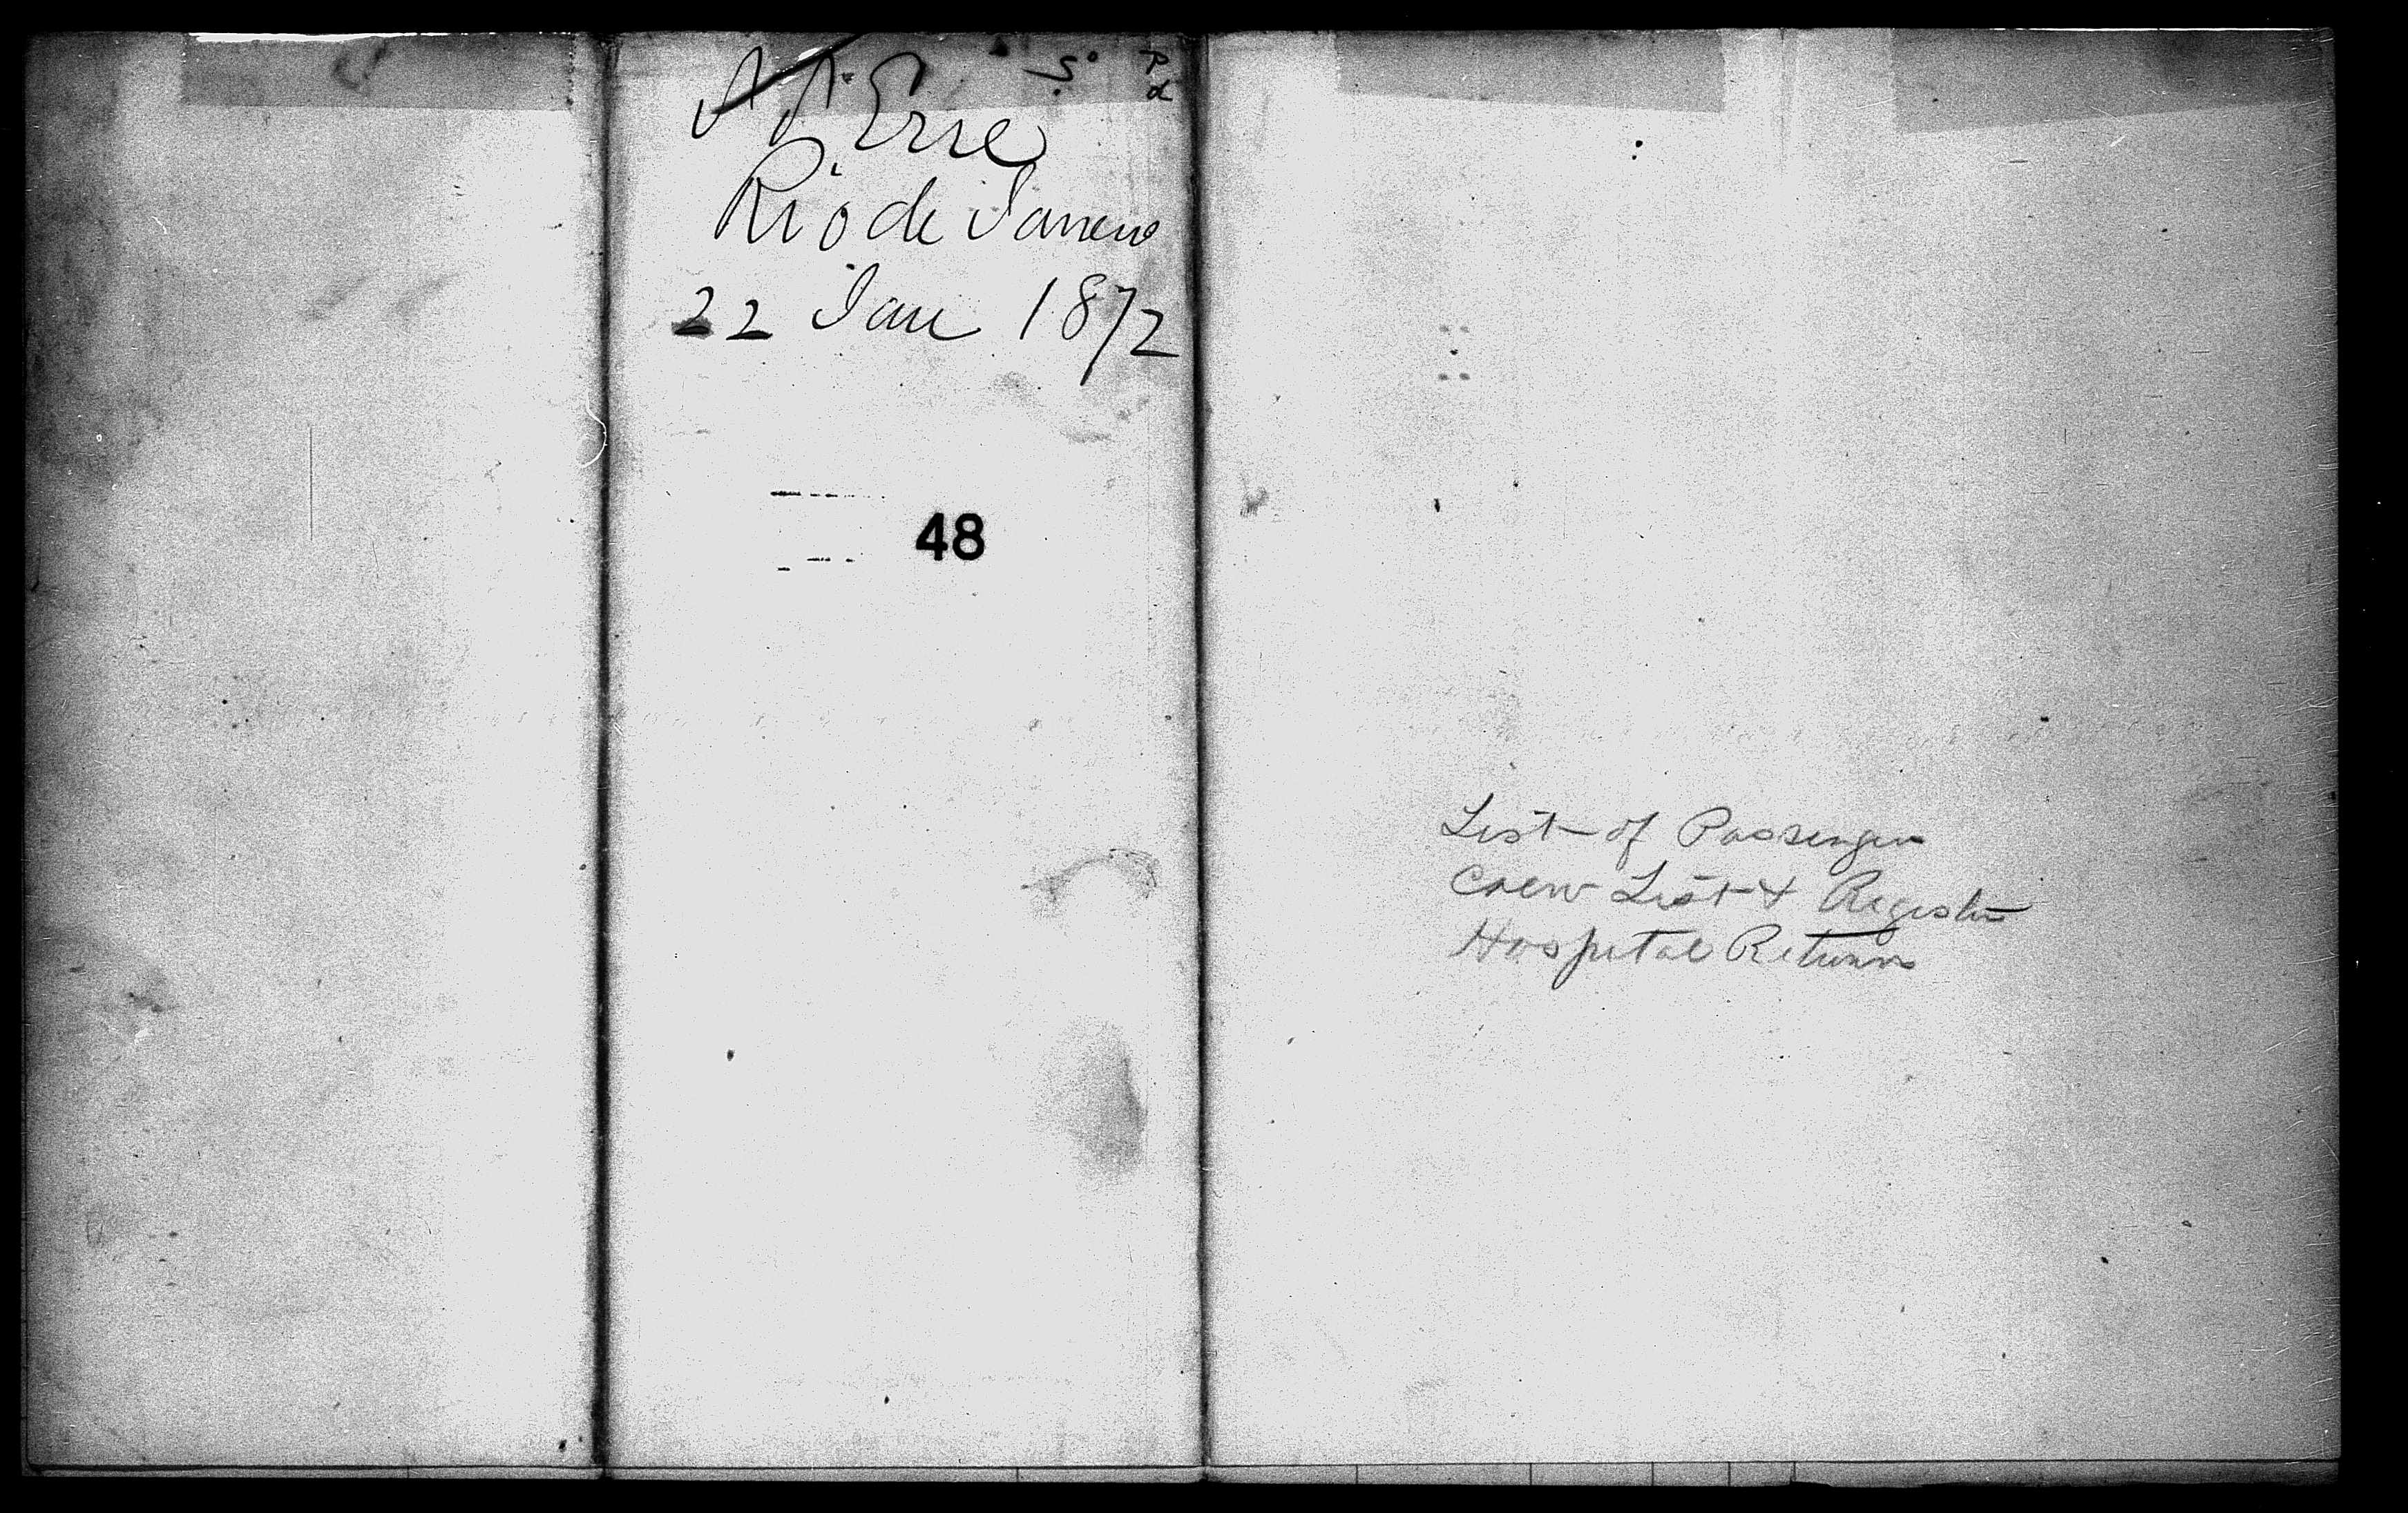 Erie
Rio de Janeiro
22 Jan 1872
48
List of Passengers
Crew List & Register
Hospital Returns